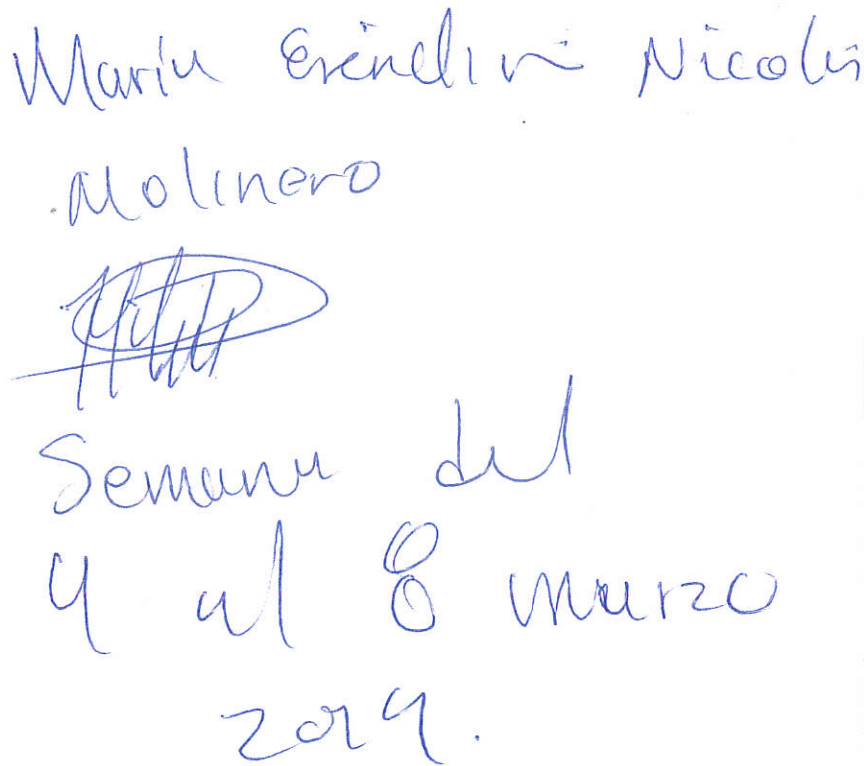 María Eréndira Nicolás
Molinero
Semana del
4 al 8 marzo
2019.